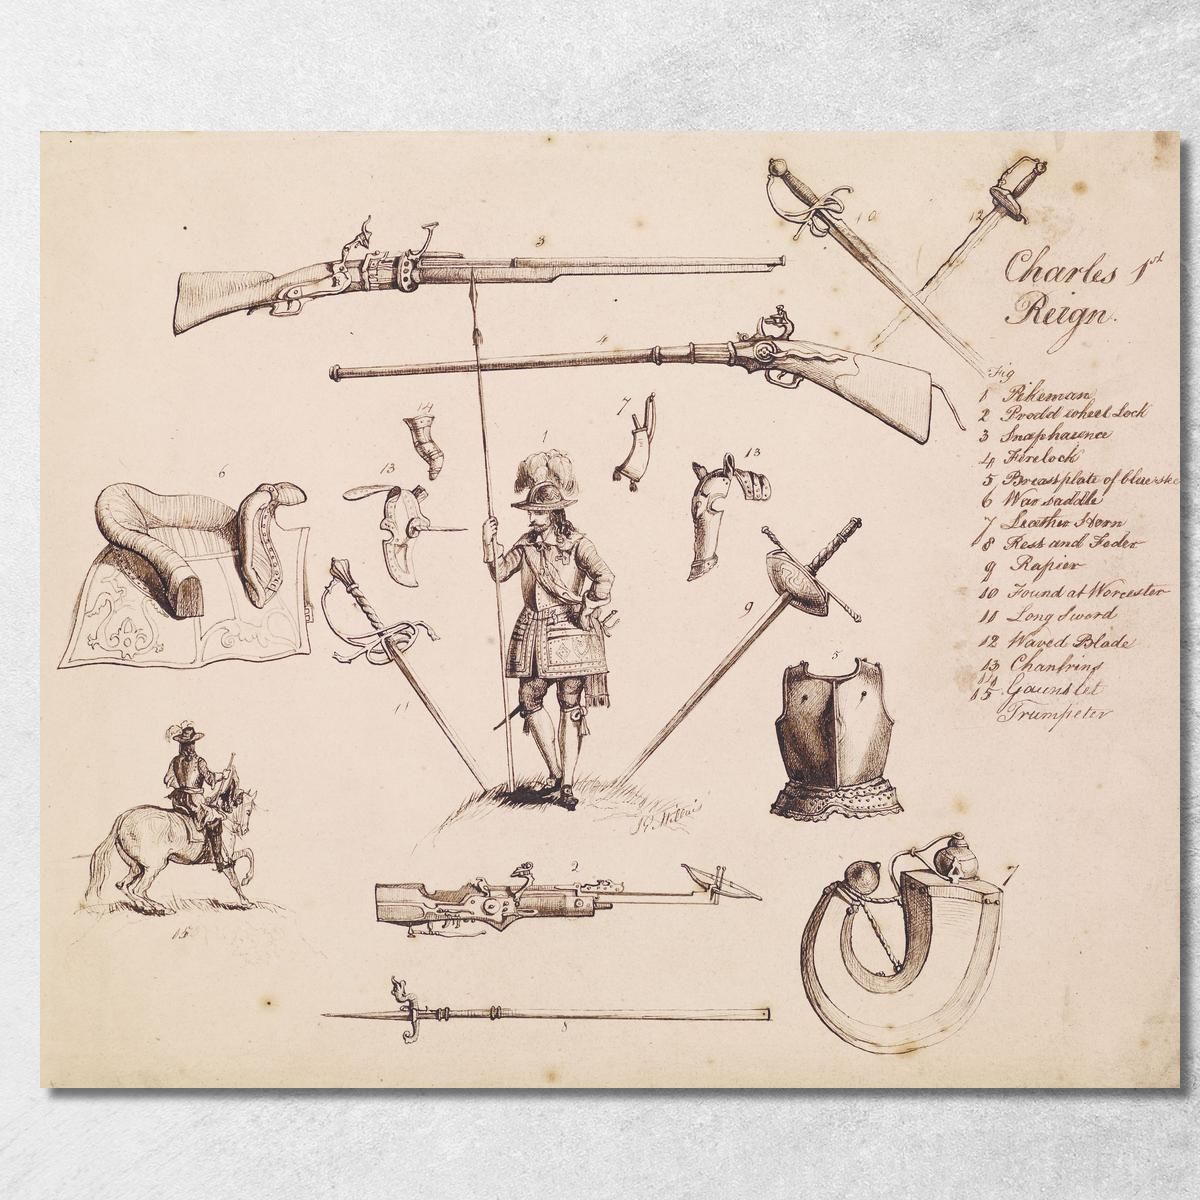 3
10
12
Charles 1st
Reign.
4
Fig
1 Pikeman
2 Prodd wheel Lock
3 Snaphaunce
4 Firelock
5 Breastplate of blue
6 War saddle
7 Leather Horn
8 Rest and Feder
9 Rapier
10 Found at Worcester
11 Long Sword
12 Waved Blade
13 Chanfrins
14 Gauntlet
15 Trumpeter
14
7
1
13
13
6
9
5
11
2
7
15
8